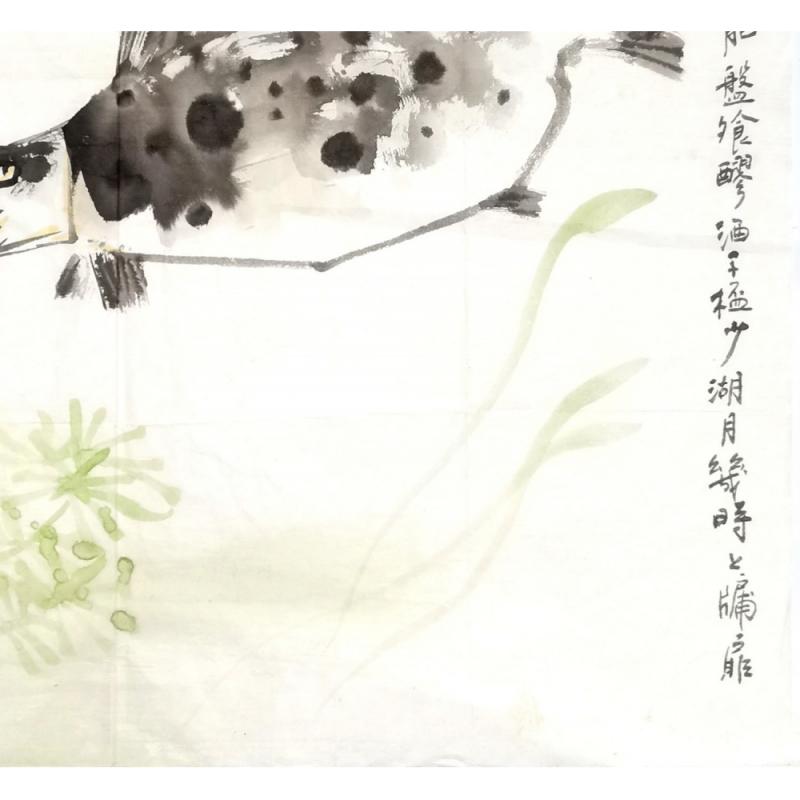 盤飧醪酒千榼少湖月幾時上牖扉